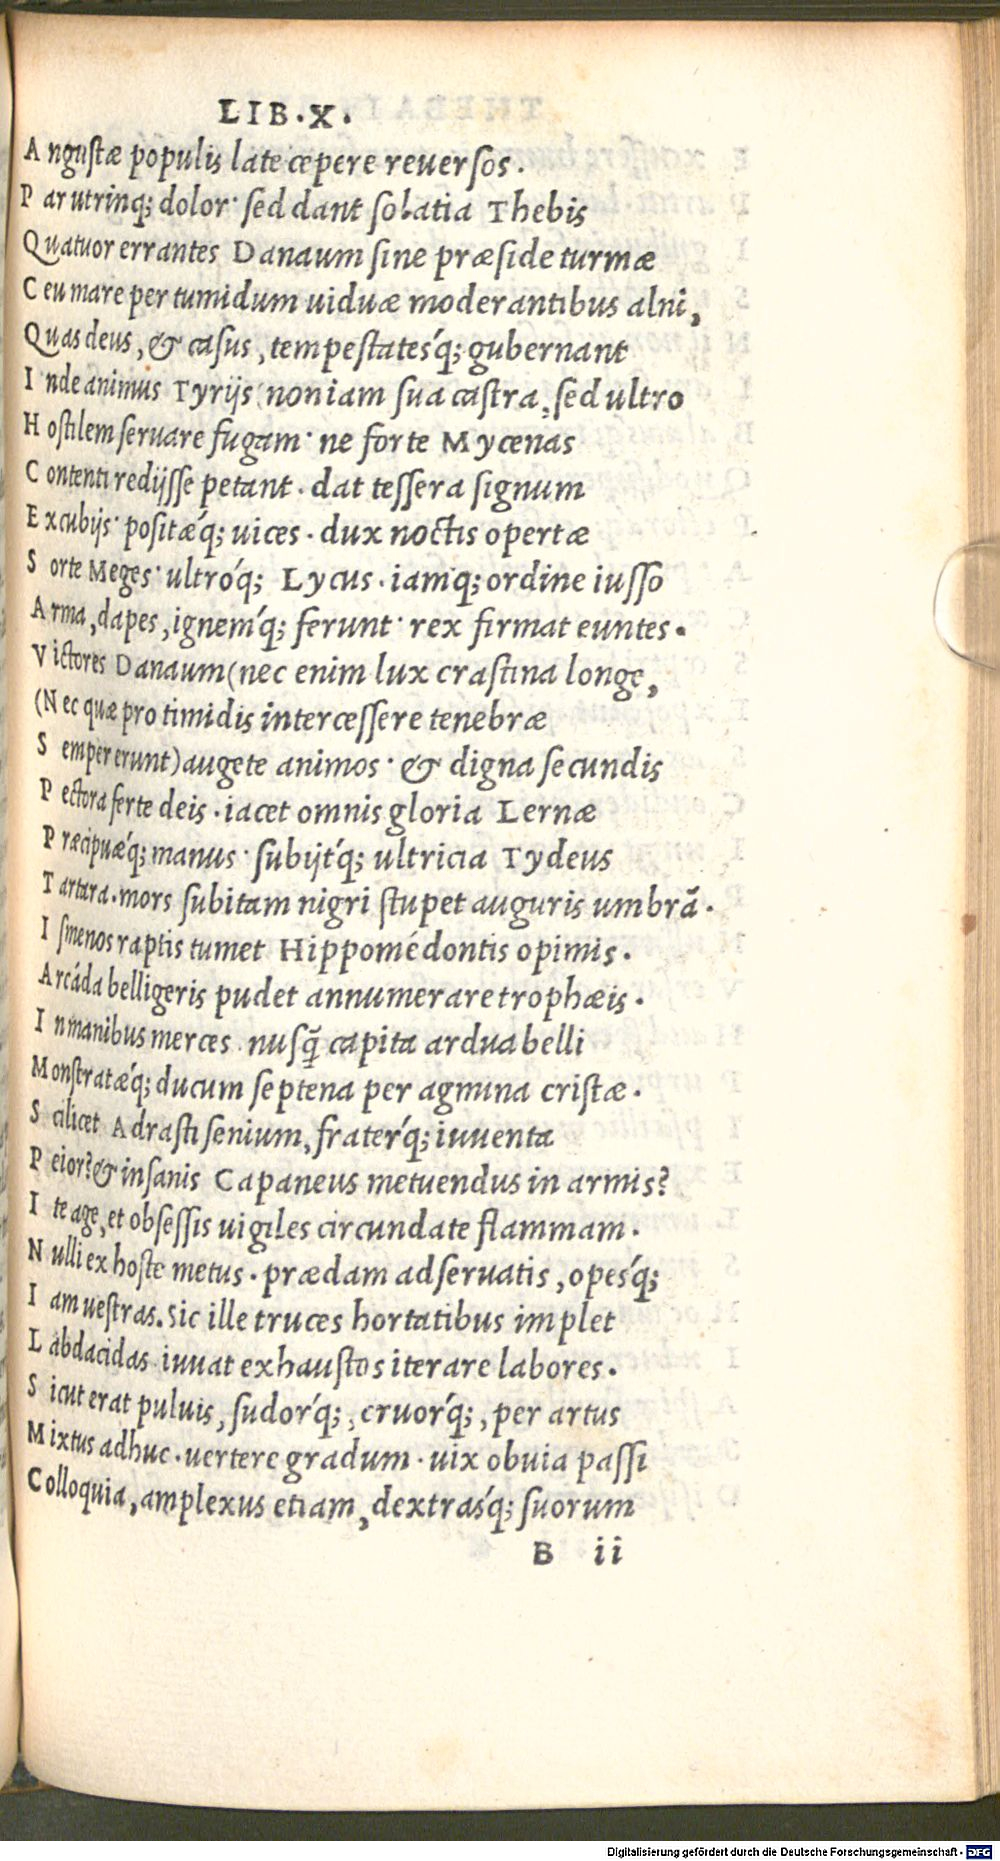 LIB.X.
Angustæ populis late cepere reuersos.
Par utrinq; dolor· sed dant solatia Thebis
Quatuor errantes Danaum sine præside turmæ
Ceu mare per tumidum uiduæ moderantibus alni,
Quas deus, & casus, tempestatés'q; gubernant
Inde animus Tyrijs non iam sua castra, sed ultro
Hostilem seruare fugam· ne forte Mycenas
Contenti redijsse petant. dat tessera signum
Excubijs· positǽ'q; uices. dux noctis opertæ
Sorte Meges· ultró'q; Lycus. iamq; ordine iusso
Arma, dapes, ignem'q; ferunt· rex firmat euntes.
Victores Danaum (nec enim lux crastina longe,
(Nec quæ pro timidis intercessere tenebræ
Semper erunt) augete animos· & digna secundis
Pectora ferte deis. iacet omnis gloria Lernæ
Præcipuǽ'q; manus· subijt'q; ultricia Tydeus
Tartara. mors subitam nigri stupet auguris umbrā.
Ismenos raptis tumet Hippomédontis opimis.
Arcáda belligeris pudet annumerare trophæis.
In manibus merces. nusq̄ capita ardua belli
Monstratǽ'q; ducum septena per agmina cristæ.
Scilicet Adrasti senium, fratér'q; iuuenta
Peior? & insanis Capaneus metuendus in armis?
Ite age, et obsessis uigiles circundate flammam.
Nulli ex hoste metus. prædam adseruatis, opés'q;
Iam uestras. Sic ille truces hortatibus implet
Labdacidas· iuuat exhaustos iterare labores.
Sicut erat puluis, sudór'q;, cruór'q;, per artus
Mixtus adhuc. uertere gradum· uix obuia passi
Colloquia, amplexus etiam, dextrás'q; suorum
B ii
Digitalisierung gefördert durch die Deutsche Forschungsgemeinschaft - DFG